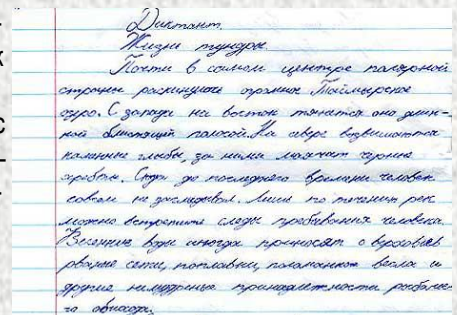 Диктант.
Жизнь тундры.
Почти в самом центре полярной
страны раскинулось огромное Таймырское
озеро. С запада на восток тянется оно длин-
ной блестящей полосой. На севере возвышаются
каменные глыбы, за ними маячат черные
хребты. Сюда до последнего времени человек
совсем не заглядывал. Лишь по течению рек
можно встретить следы пребывания человека.
Весенние воды иногда приносят с верховьев
рваные сети, поплавки, поломанные весла и
другие немудреные принадлежности рыбачье-
го обихода.